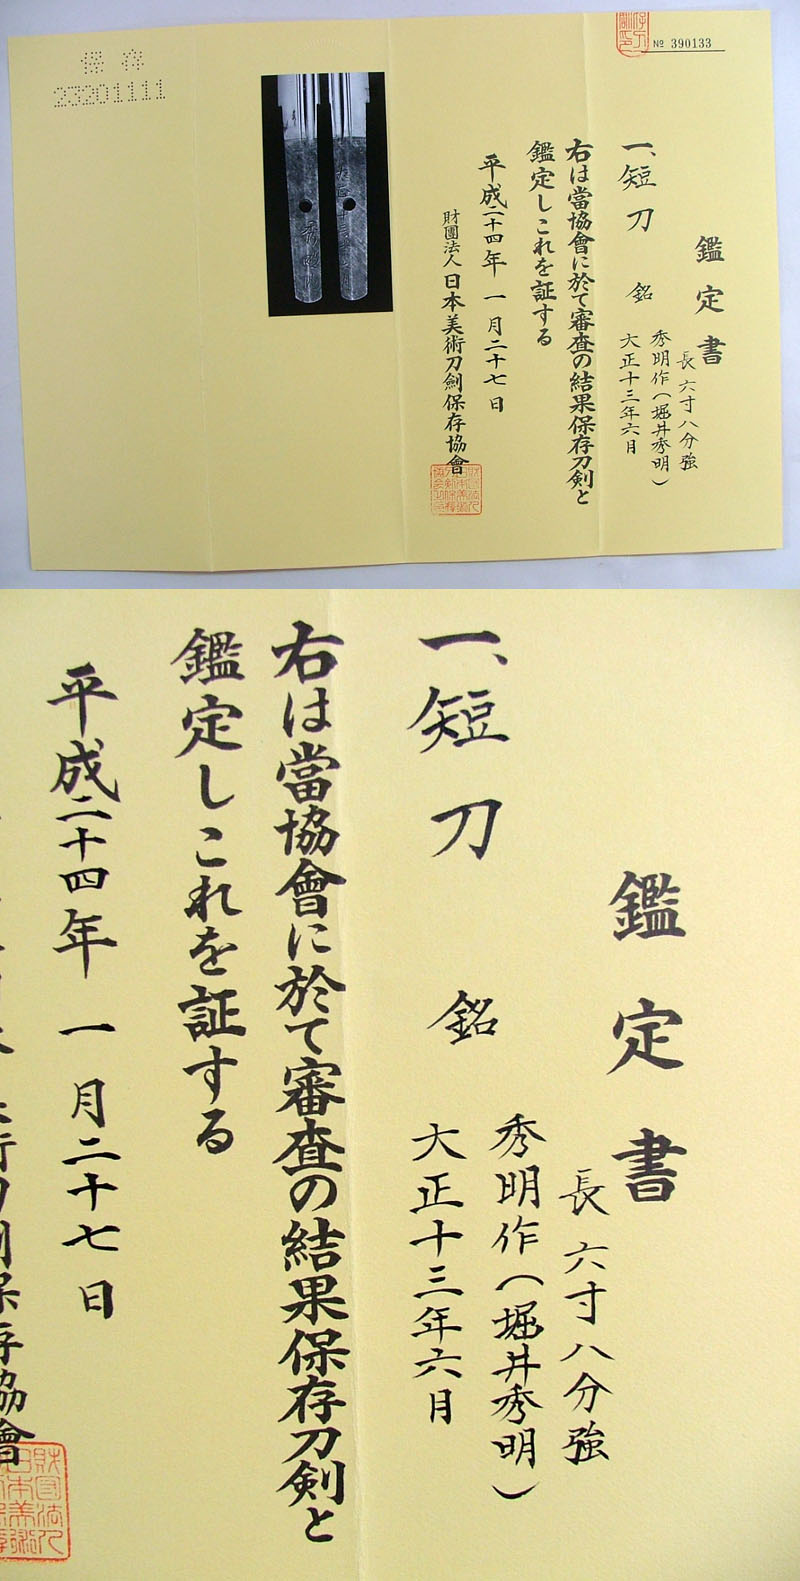 保存
23201111
№ 390133
鑑定書
一、短刀 銘
長 六寸八分強
秀明作（堀井秀明）
大正十三年六月
右は當協會に於て審査の結果保存刀剣と
鑑定しこれを証する
平成二十四年 一月二十七日
財團法人 日本美術刀劍保存協會
鑑定書
一、短刀 銘
長 六寸八分強
秀明作（堀井秀明）
大正十三年六月
右は當協會に於て審査の結果保存刀剣と
鑑定しこれを証する
平成二十四年 一月二十七日